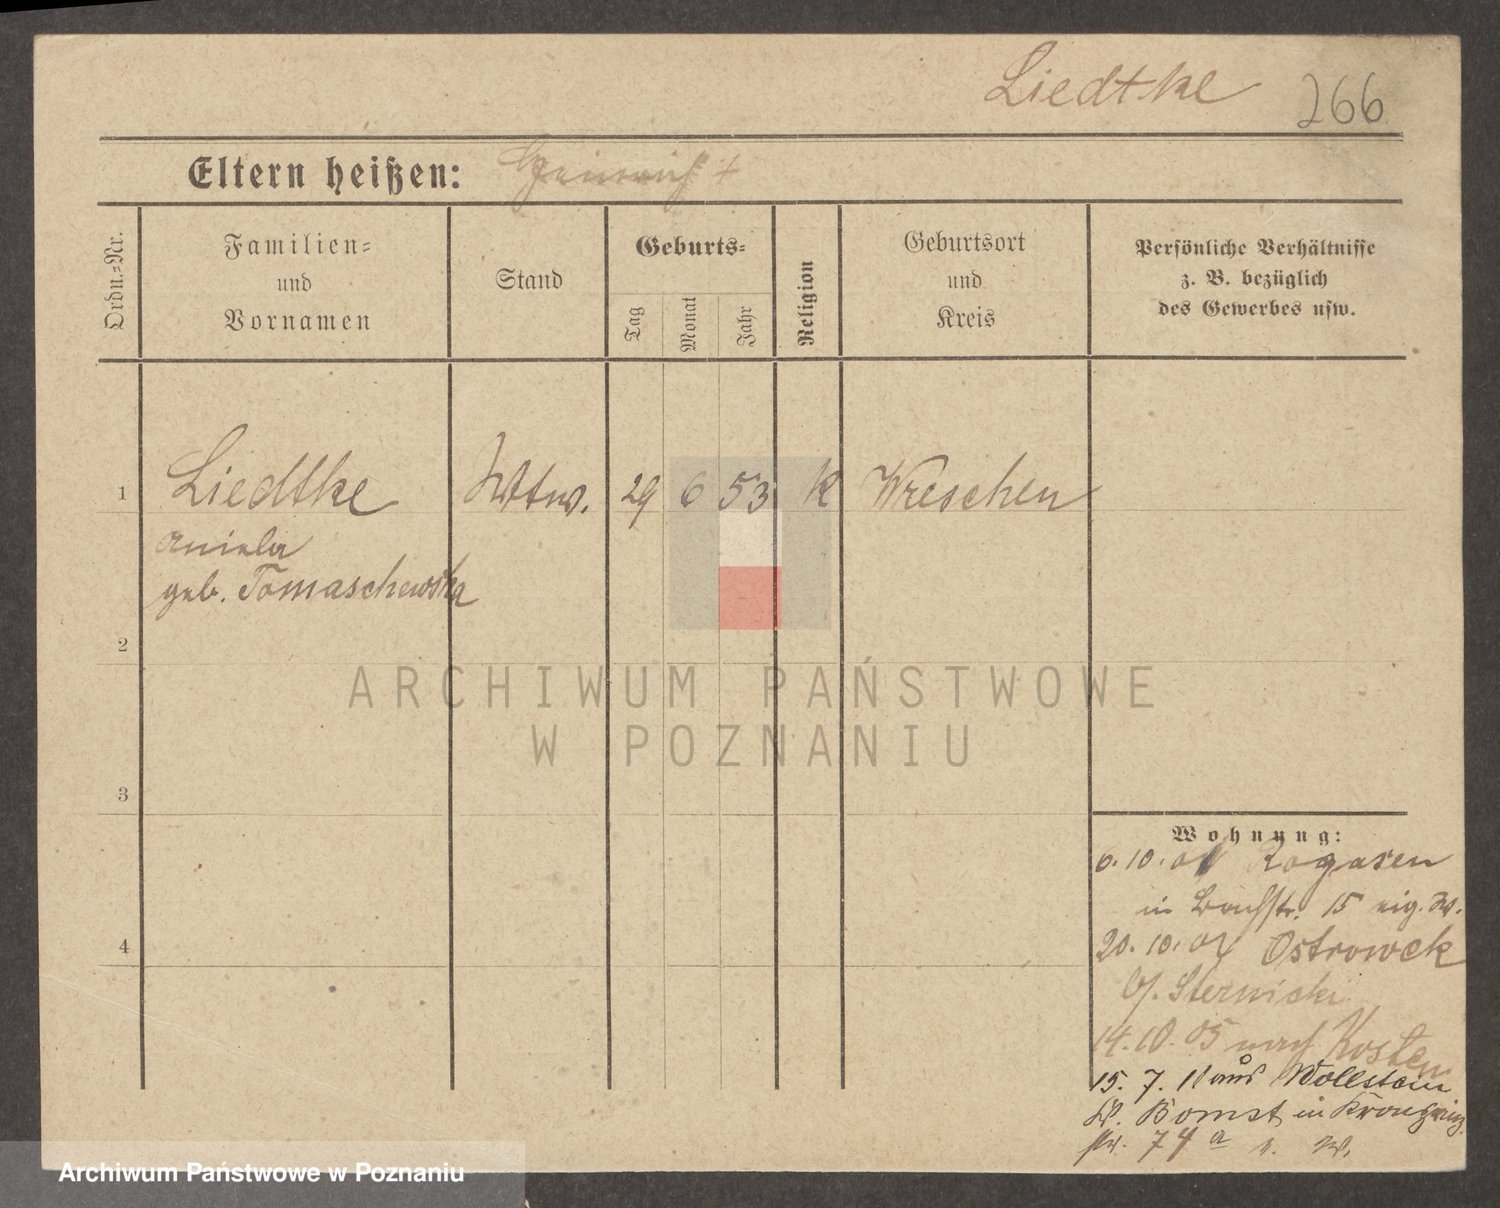 Liedtke 266
Eltern heißen: Heinrich +
Ordn.=Nr.
Familien=
und
Vornamen
Stand
Geburts=
Tag
Monat
Jahr
Religion
Geburtsort
und
Kreis
Persönliche Verhältnisse
z. B. bezüglich
des Gewerbes usw.
1 Liedtke Wtw. 29 6 53 K Wreschen
Aniela
geb. Tomaschewska
2
3
4
ARCHIWUM PAŃSTWOWE
W POZNANIU
Wohnung:
6. 10. 04 Rogasen
in Bachstr. 15 eig. W.
20. 10. 04 Ostrowek
b/. Sternicki
14. 10. 05 nach Kosten
15. 7. 11 aus Wollstein
Kr. Bomst in Kronprinz
str. 74 a
Archiwum Państwowe w Poznaniu